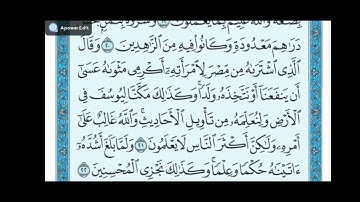 ApowerEdit
بِضَٰعَةً وَٱللَّهُ عَلِيمٌۢ بِمَا يَعْمَلُونَ ۝١٩ وَشَرَوْهُ بِثَمَنٍۭ بَخْسٍ
دَرَٰهِمَ مَعْدُودَةٍ وَكَانُوا۟ فِيهِ مِنَ ٱلزَّٰهِدِينَ ۝٢٠ وَقَالَ
ٱلَّذِى ٱشْتَرَىٰهُ مِن مِّصْرَ لِٱمْرَأَتِهِۦٓ أَكْرِمِى مَثْوَىٰهُ عَسَىٰٓ
أَن يَنفَعَنَآ أَوْ نَتَّخِذَهُۥ وَلَدًا ۚ وَكَذَٰلِكَ مَكَّنَّا لِيُوسُفَ فِى
ٱلْأَرْضِ وَلِنُعَلِّمَهُۥ مِن تَأْوِيلِ ٱلْأَحَادِيثِ ۚ وَٱللَّهُ غَالِبٌ عَلَىٰٓ
أَمْرِهِۦ وَلَٰكِنَّ أَكْثَرَ ٱلنَّاسِ لَا يَعْلَمُونَ ۝٢١ وَلَمَّا بَلَغَ أَشُدَّهُۥٓ
ءَاتَيْنَٰهُ حُكْمًا وَعِلْمًا ۚ وَكَذَٰلِكَ نَجْزِى ٱلْمُحْسِنِينَ ۝٢٢